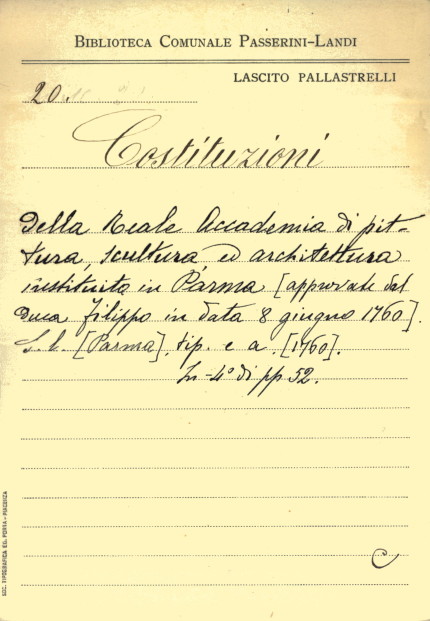 BIBLIOTECA COMUNALE PASSERINI-LANDI
LASCITO PALLASTRELLI
20.
Costituzioni
Della Reale Accademia di pit-
tura, scultura ed architettura
instituito in Parma [approvate dal
Duca Filippo in data 8 giugno 1760].
S. l. [Parma], tip. e a. [1760].
In-4° di pp 52.
C
SOC. TIPOGRAFICA ED. PORTA-PIACENZA